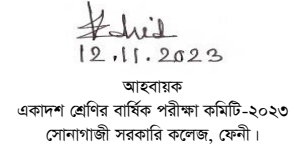 12.11.2023
আহবায়ক
একাদশ শ্রেণির বার্ষিক পরীক্ষা কমিটি-২০২৩
সোনাগাজী সরকারি কলেজ, ফেনী।